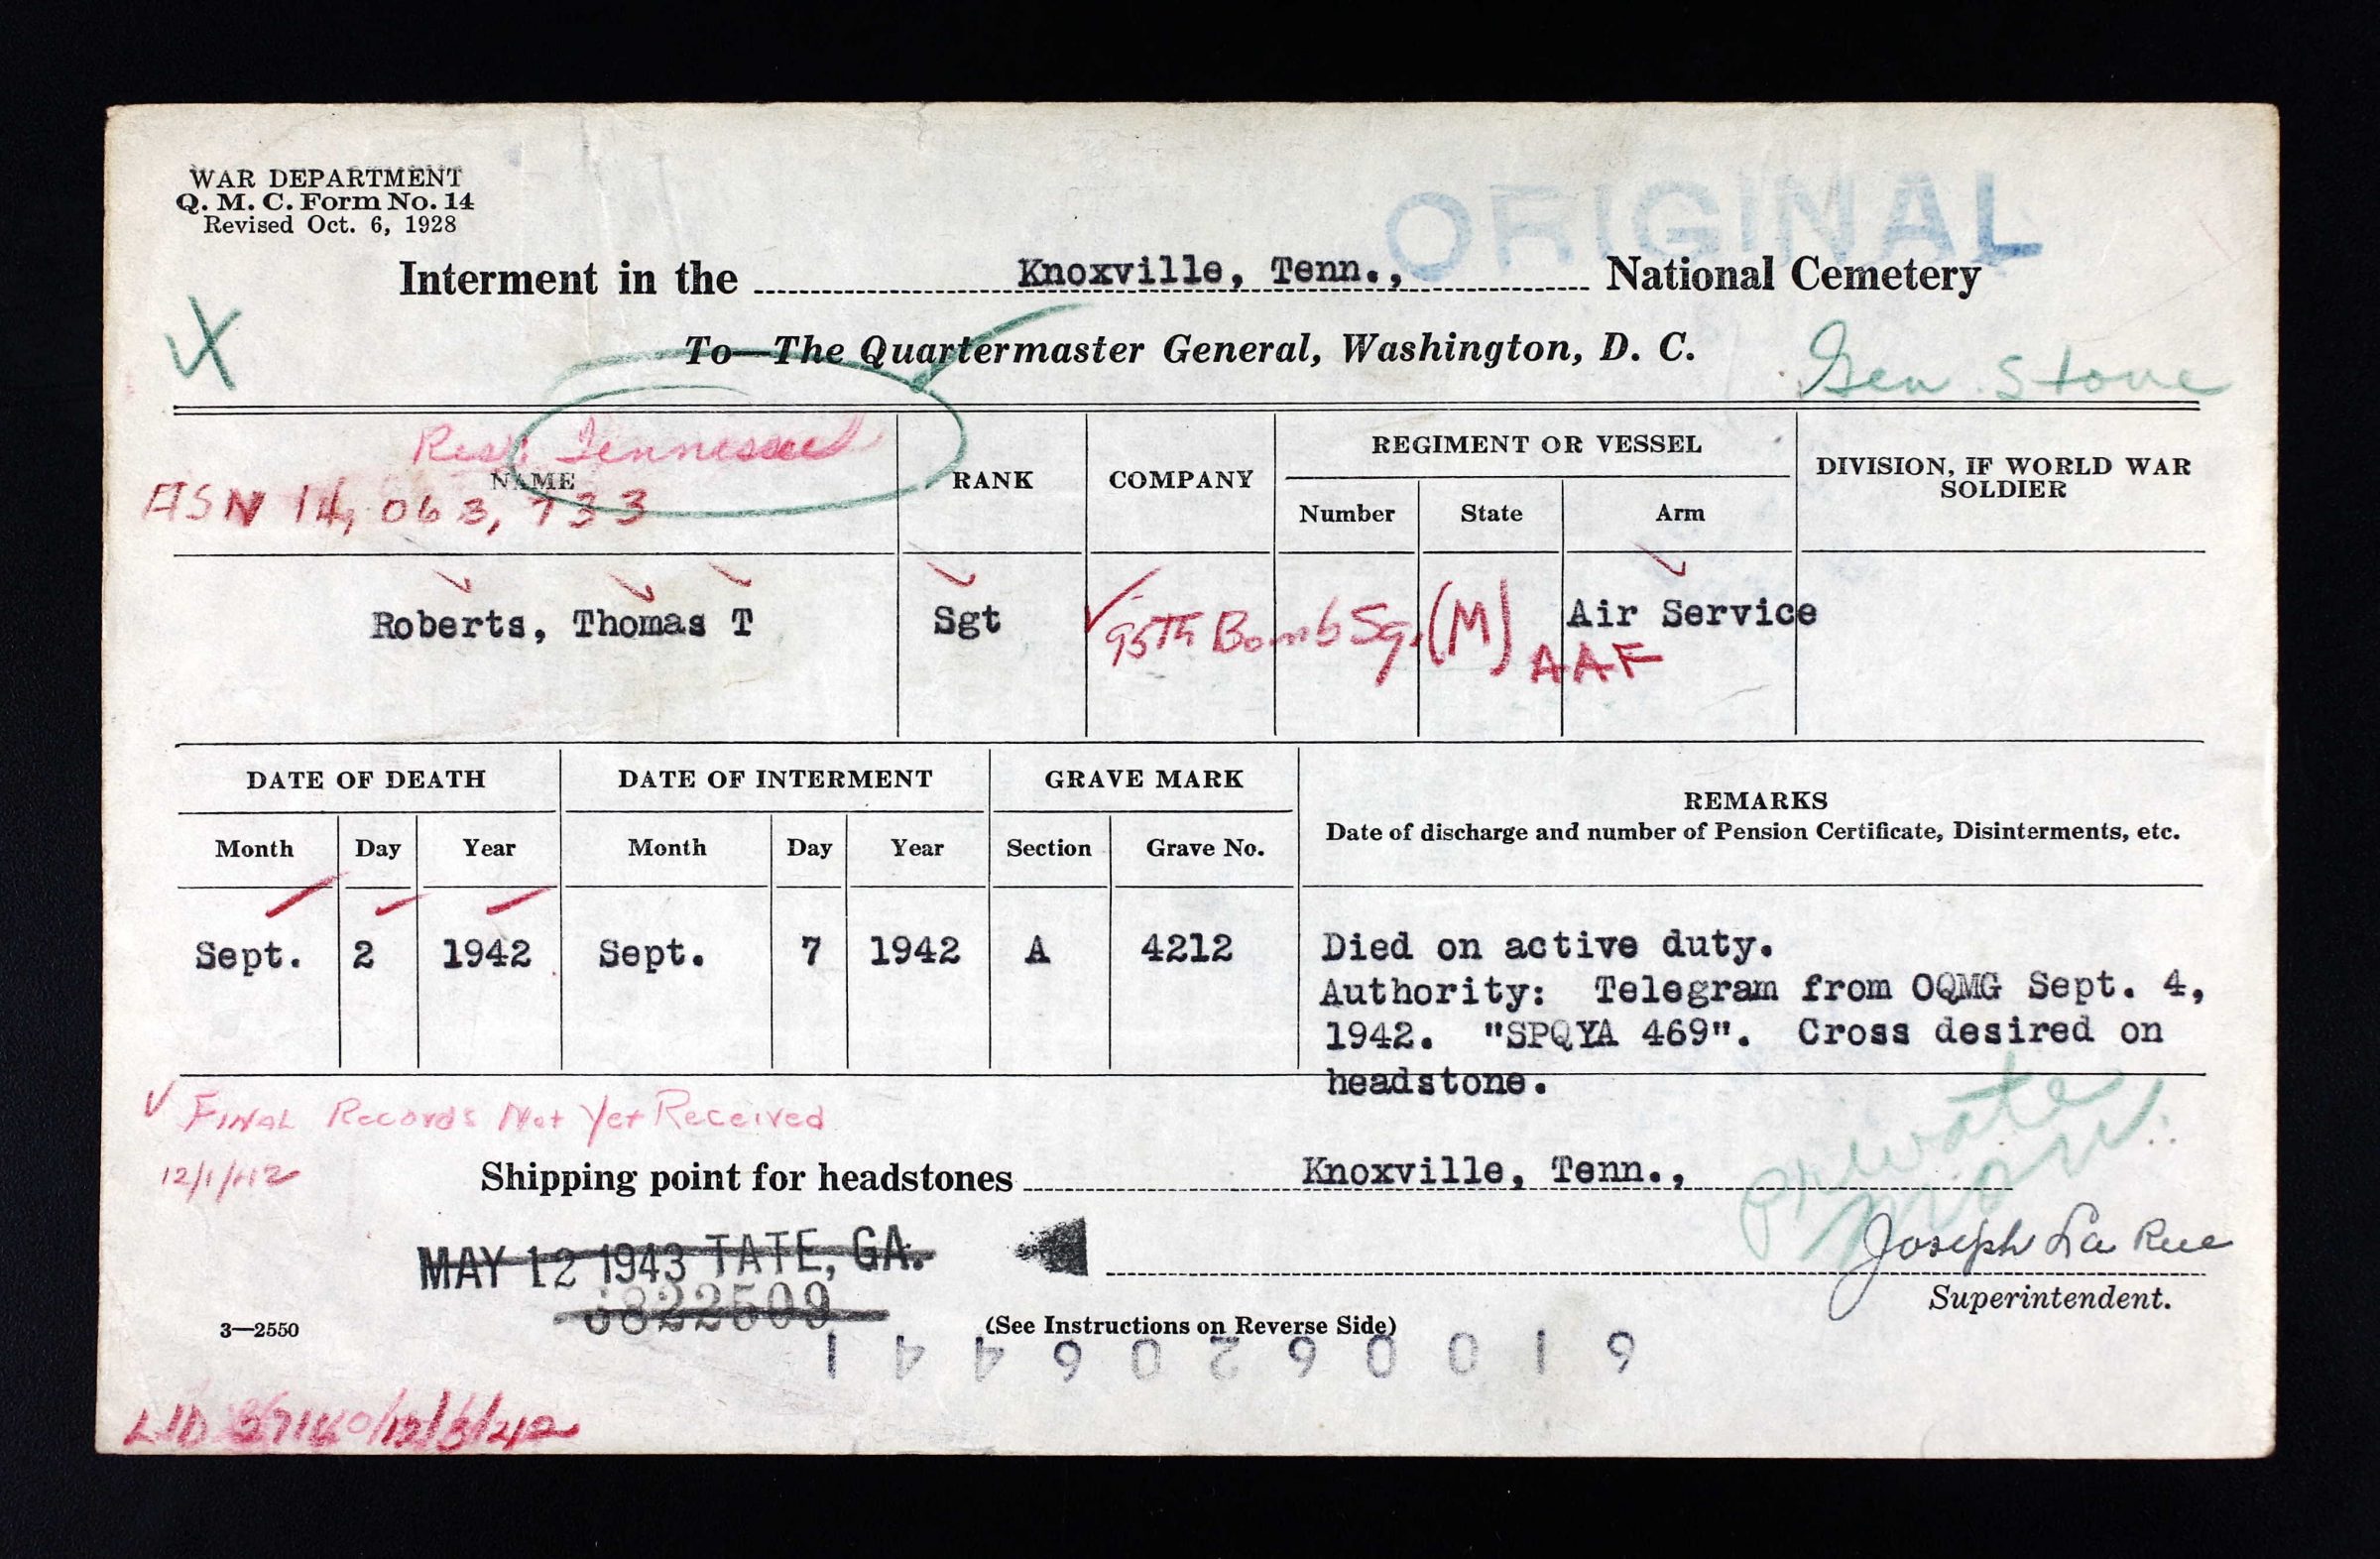 WAR DEPARTMENT
Q. M. C. Form No. 14
Revised Oct. 6, 1928
ORIGINAL
Interment in the Knoxville, Tenn., National Cemetery
To—The Quartermaster General, Washington, D. C.
Gen. Stone
Res. Tennessee
NAME
ASN 14,063,733
RANK
COMPANY
REGIMENT OR VESSEL
Number State Arm
DIVISION, IF WORLD WAR
SOLDIER
Roberts, Thomas T Sgt 95Th Bomb Sq. (M) Air Service
AAF
DATE OF DEATH DATE OF INTERMENT GRAVE MARK
REMARKS
Date of discharge and number of Pension Certificate, Disinterments, etc.
Month Day Year Month Day Year Section Grave No.
Sept. 2 1942 Sept. 7 1942 A 4212
Died on active duty.
Authority: Telegram from OQMG Sept. 4,
1942. "SPQYA 469". Cross desired on
headstone.
Final Records Not Yet Received
12/1/42
private
Shipping point for headstones Knoxville, Tenn.,
MAY 12 1943 TATE, GA.
Joseph La Rue
Superintendent.
3—2550
(See Instructions on Reverse Side)
6100620644 1